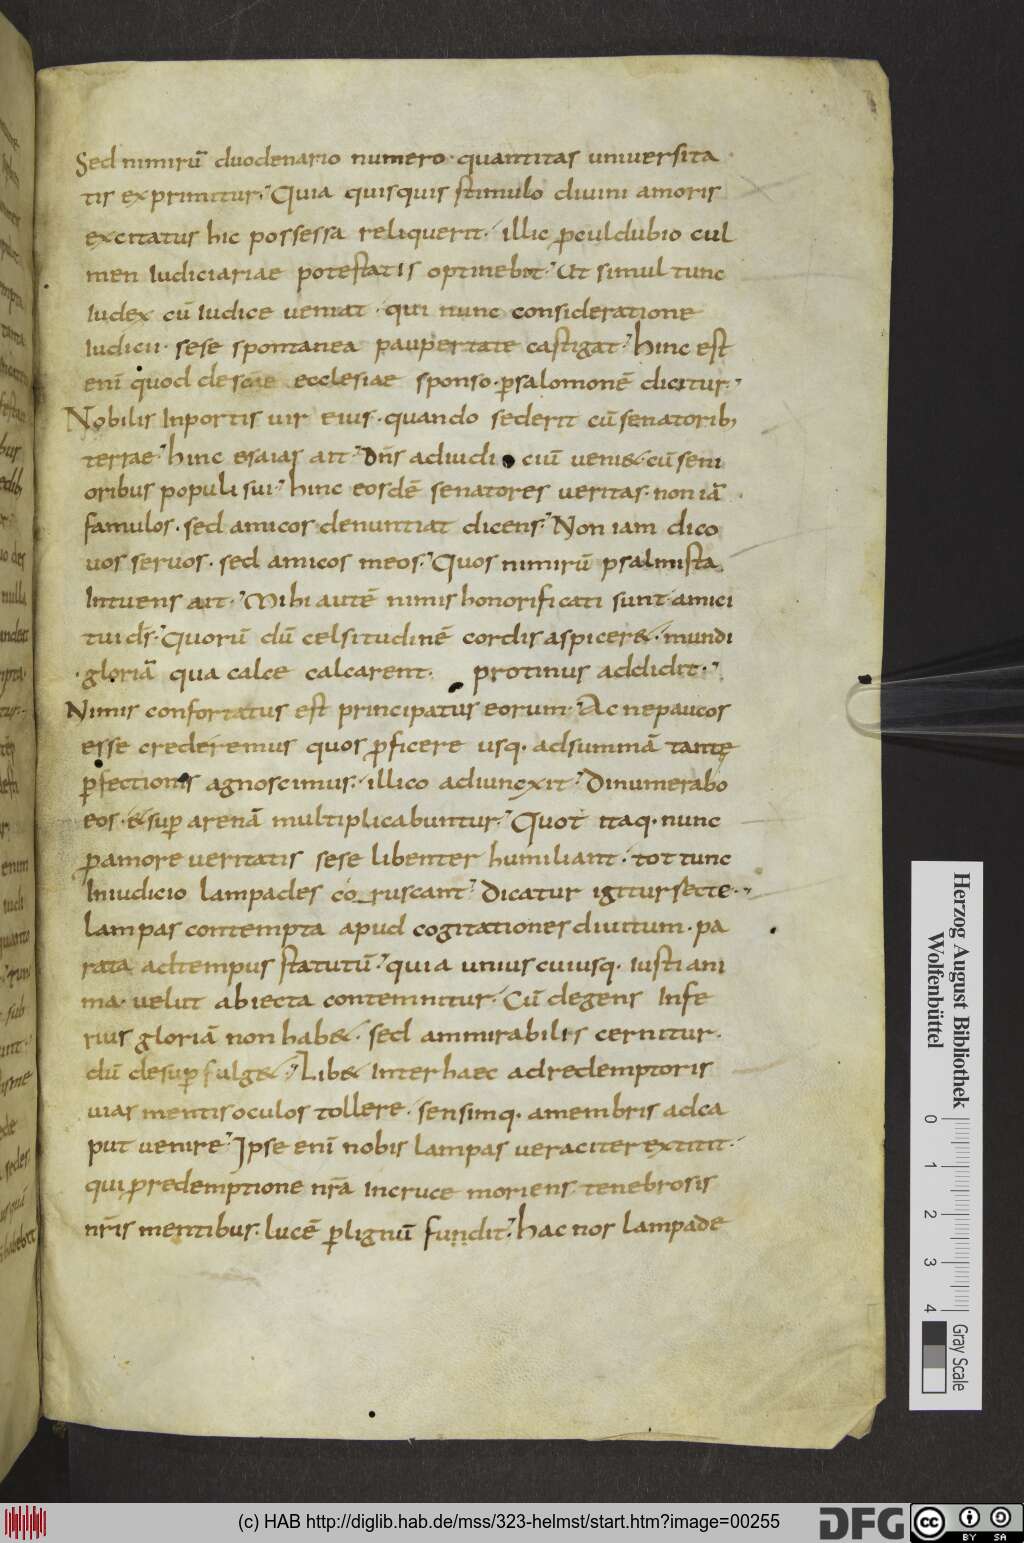 Sed nimirū duodenario numero· quantitas universita
tis exprimitur· Quia quisquis stimulo divini amoris
excitatus hic possessa reliquerit· illic ꝓculdubio cul
men Iudiciariae potestatis optinebit· Ut simul tunc
Iudex cū Iudice veniat· qui nunc consideratione
Iudicii· sese spontanea paupertate castigat· hinc est
enī quod de scāe ecclesiae sponso· ꝑsalomonē dicitur·
Nobilis Inportis vir eius· quando sederit cū senatorib;
terrae· hinc esaias ait· Dn̄s adiudi ciū veni&· cū seni
oribus populi sui· hinc eosdē senatores veritas· non iā
famulos· sed amicos denuntiat dicens· Non iam dico
vos servos· sed amicos meos· Quos nimirū psalmista
Intuens ait· Mihi autē nimis honorificati sunt· amici
tui dš· Quorū dū celsitudinē cordis aspicer&· mundi
gloriā qua calce calcarent· protinus addidit·
Nimis confortatus est principatus eorum· Ac nepaucos
esse crederemus quos ꝓficere usq· adsummā tantę
ꝑfectionis agnoscimus· illico adiuncxit· Dinumerabo
eos· &suꝑ arenā multiplicabuntur· Quot itaq· nunc
ꝓamore veritatis sese libenter humiliant· tot tunc
Iniudicio lampades coruscant· Dicatur igitur recte·
Lampas contempta apud cogitationes divitum· pa
rata adtempus statutū· quia unius cuiusq· iusti ani
ma· velut abiecta contemnitur· Cū degens Infe
rius gloriā non hab&· sed ammirabilis cernitur·
dū desuꝑ fulg&· Lib& Inter haec adredemptoris
vias mentis oculos tollere· sensimq· amembris adca
put venire· Ipse enī nobis lampas veraciter extitit·
qui ꝓredemptione nr̄a Incruce moriens· tenebrosis
nr̄is mentibus· lucē ꝑlignū fundit· hac nos lampade
Herzog August Bibliothek
Wolfenbüttel
0 1 2 3 4
Gray Scale
(c) HAB http://diglib.hab.de/mss/323-helmst/start.htm?image=00255
DFG
cc BY SA